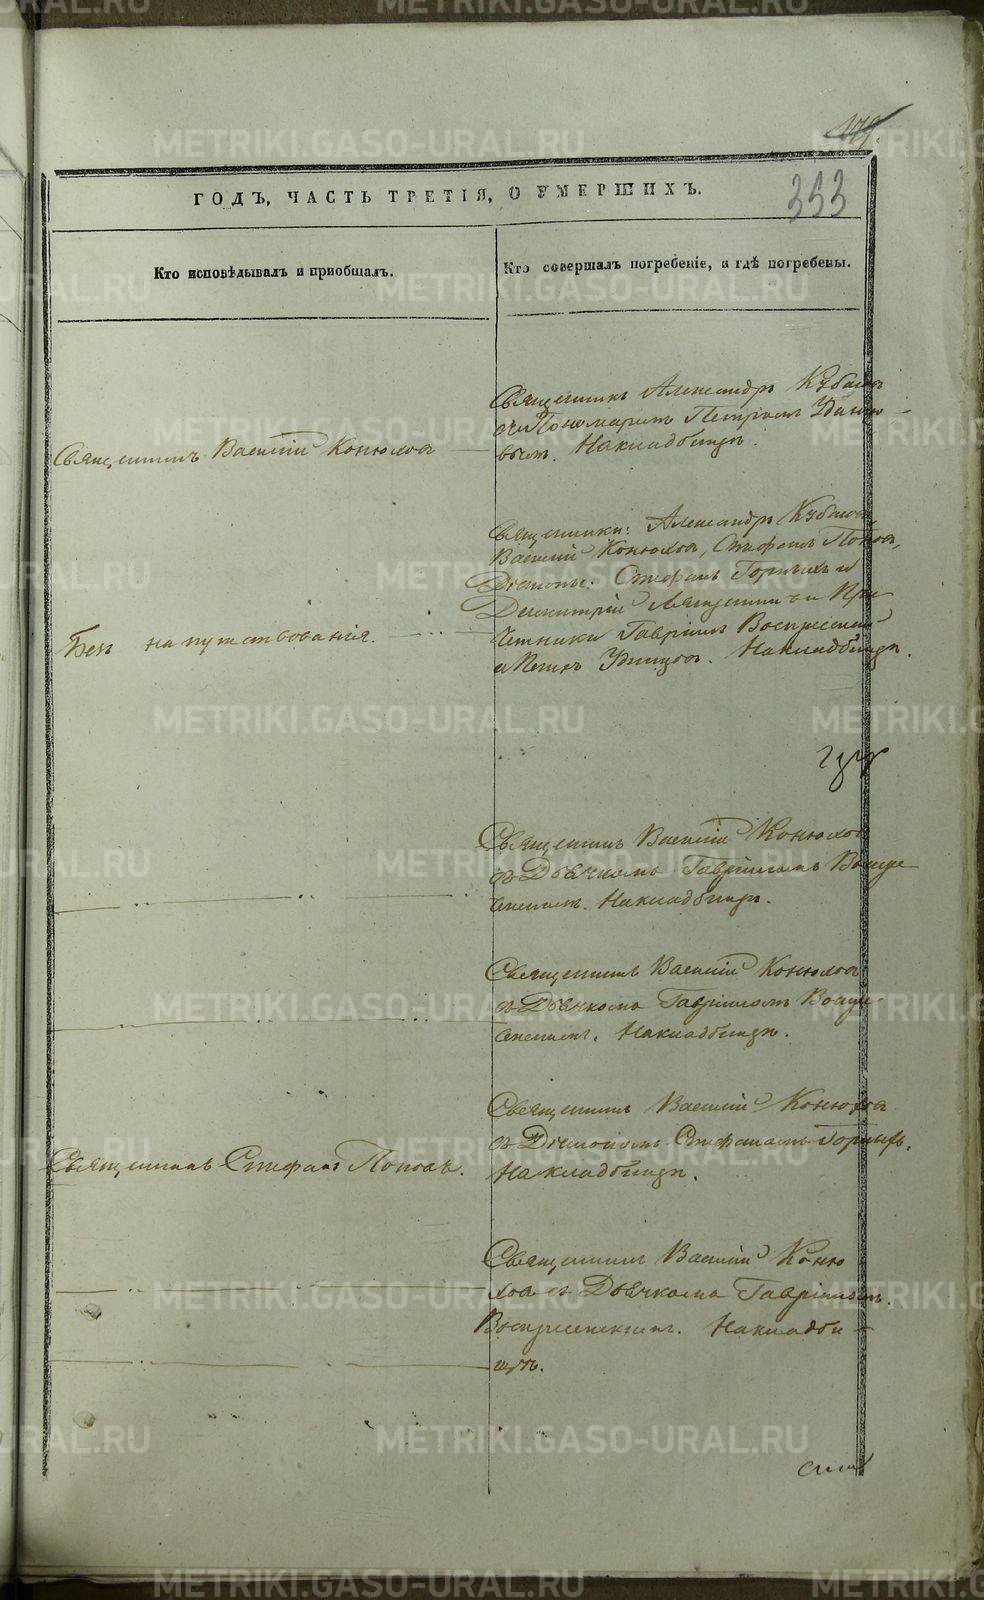 179.
353
ГОДЪ, ЧАСТЬ ТРЕТІЯ, О УМЕРШИХЪ.
Кто исповѣдывалъ и пріобщалъ.
Кто совершалъ погребеніе, и гдѣ погребены.
Священникъ Василій Конюхов
Священникъ Александръ
съ Пономаремъ Петромъ
вымъ. На кладбищѣ.
Безъ напутствованія.
Священники: Александръ
Василій Конюхов, Стефанъ Попов,
Діаконы: Стефанъ Горныхъ и
Димитрій и При
четники Гавріилъ Воскресенскій
и На кладбищѣ.
Священникъ Василій Конюхов
съ Дьячкомъ Гавріиломъ Воскре
сенскимъ. На кладбищѣ.
Священникъ Василій Конюхов
съ Дьячкомъ Гавріиломъ Воскре
сенскимъ. На кладбищѣ.
Священникъ Стефанъ Попов.
Священникъ Василій Конюхов
съ Діакономъ Стефаномъ Горныхъ.
На кладбищѣ.
Священникъ Василій Коню
хов съ Дьячкомъ Гавріиломъ
Воскресенскимъ. На кладби
щѣ.
METRIKI.GASO-URAL.RU